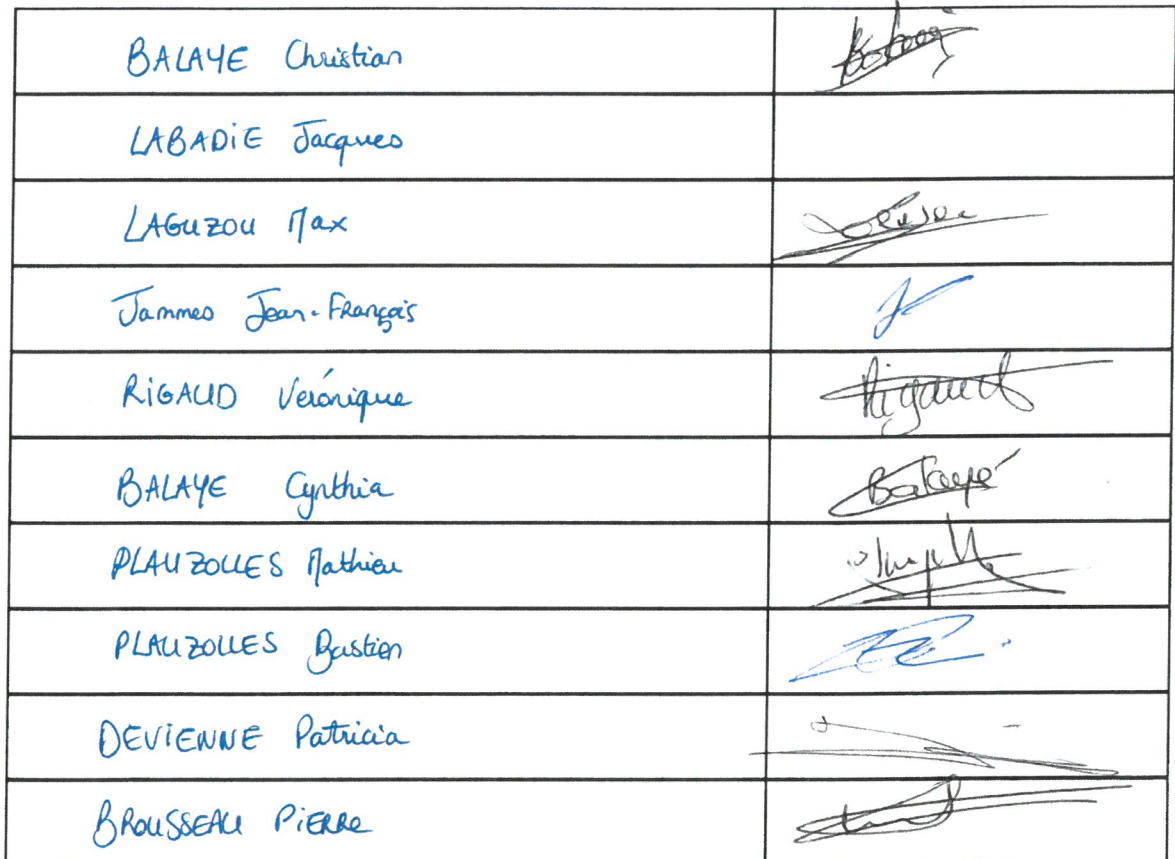 BALAYE Christian
LABADiE Jacques
LAGUZOU Max
Jammes Jean-François
RiGAUD Véronique
Rigaud
BALAYE Cynthia
Balayé
PLAUZOLLES Mathieu
PLAUZOLLES Bastien
DEViENNE Patricia
BROUSSEAU PiERRE